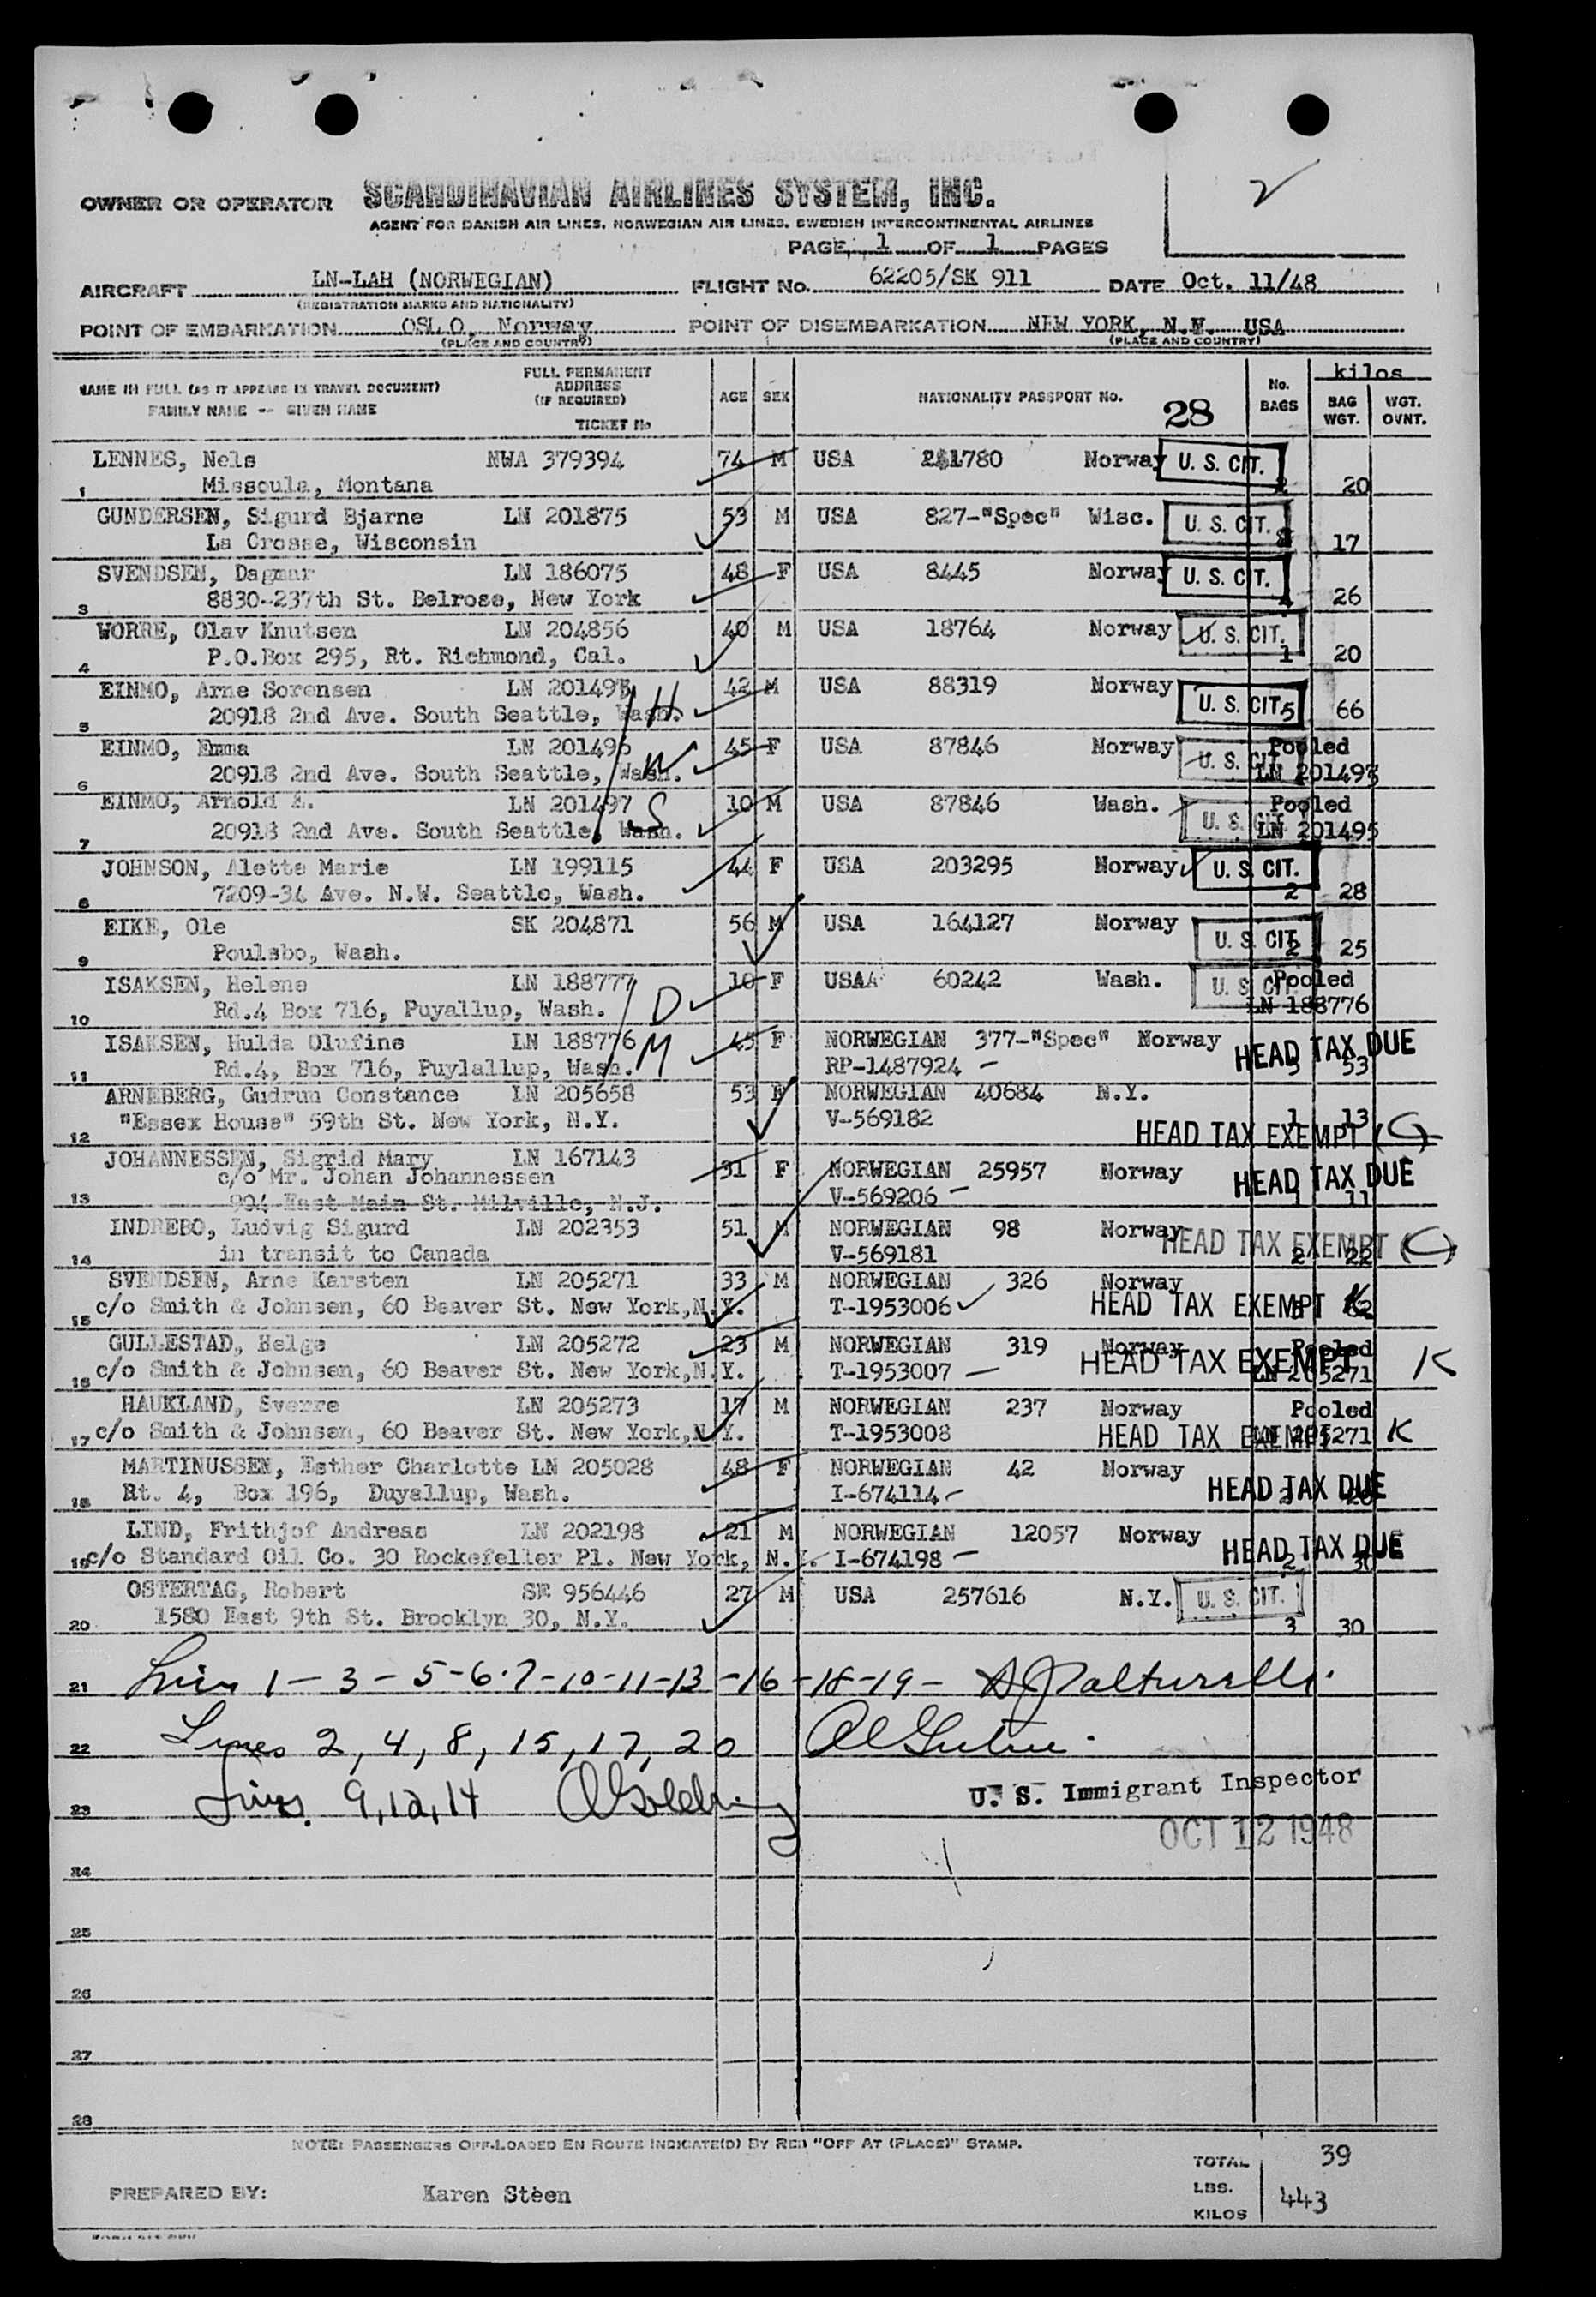 2
OWNER OR OPERATOR SCANDINAVIAN AIRLINES SYSTEM, INC.
AGENT FOR DANISH AIR LINES, NORWEGIAN AIR LINES, SWEDISH INTERCONTINENTAL AIRLINES
PAGE 1 OF 1 PAGES
AIRCRAFT LN-LAH (NORWEGIAN) FLIGHT No. 62205/SK 911 DATE Oct. 11/48
(REGISTRATION MARKS AND NATIONALITY)
POINT OF EMBARKATION OSLO, Norway POINT OF DISEMBARKATION NEW YORK, N.Y. USA
(PLACE AND COUNTRY) (PLACE AND COUNTRY)
NAME IN FULL (AS IT APPEARS IN TRAVEL DOCUMENT) FULL PERMANENT ADDRESS (IF REQUIRED) AGE SEX NATIONALITY PASSPORT No. 28 No. BAGS kilos
FAMILY NAME -- GIVEN NAME TICKET No BAG WGT. WGT. OVNT.
LENNES, Nels NWA 379394 74 M USA 1780 Norway U. S. CIT.
1 Missoula, Montana 2 20
GUNDERSEN, Sigurd Bjarne LN 201875 53 M USA 827-"Spec" Wisc. U. S. CIT.
La Crosse, Wisconsin 17
SVENDSEN, Dagmar LN 186075 48 F USA 8445 Norway U. S. CIT.
3 8830-237th St. Belrose, New York 26
WORRE, Olav Knutsen LN 204856 40 M USA 18764 Norway U. S. CIT.
4 P.O.Box 295, Rt. Richmond, Cal. 1 20
EINMO, Arne Sorensen LN 201495 H 42 M USA 88319 Norway U. S. CIT.
5 20918 2nd Ave. South Seattle, Wash. 5 66
EINMO, Emma LN 201496 W 45 F USA 87846 Norway U. S. CIT. Pooled
6 20918 2nd Ave. South Seattle, Wash. LN 201495
EINMO, Arnold E. LN 201497 S 10 M USA 87846 Wash. U. S. CIT. Pooled
7 20918 2nd Ave. South Seattle, Wash. LN 201495
JOHNSON, Alette Marie LN 199115 44 F USA 203295 Norway U. S. CIT.
8 7209-34 Ave. N.W. Seattle, Wash. 2 28
EIKE, Ole SK 204871 56 M USA 164127 Norway U. S. CIT.
9 Poulsbo, Wash. 2 25
ISAKSEN, Helene LN 188777 D 10 F USA 60242 Wash. U. S. CIT. Pooled
10 Rd.4 Box 716, Puyallup, Wash. LN 188776
ISAKSEN, Hulda Olufine LN 188776 M 45 F NORWEGIAN 377-"Spec" Norway HEAD TAX DUE
11 Rd.4, Box 716, Puylallup, Wash. RP-1487924 53
ARNEBERG, Gudrun Constance LN 205658 53 F NORWEGIAN 40684 N.Y.
12 "Essex House" 59th St. New York, N.Y. V-569182 1 13 HEAD TAX EXEMPT (C)
JOHANNESSEN, Sigrid Mary LN 167143 31 F NORWEGIAN 25957 Norway HEAD TAX DUE
c/o Mr. Johan Johannessen
13 994 East Main St. Milville, N.J. V-569206 1 11
INDREBO, Ludvig Sigurd LN 202353 51 M NORWEGIAN 98 Norway HEAD TAX EXEMPT (C)
14 in transit to Canada V-569181 2 22
SVENDSEN, Arne Karsten LN 205271 33 M NORWEGIAN 326 Norway
15 c/o Smith & Johnsen, 60 Beaver St. New York,N.Y. T-1953006 HEAD TAX EXEMPT K
GULLESTAD, Helge LN 205272 23 M NORWEGIAN 319 Norway Pooled
16 c/o Smith & Johnsen, 60 Beaver St. New York,N.Y. T-1953007 HEAD TAX EXEMPT LN 205271 K
HAUKLAND, Sverre LN 205273 17 M NORWEGIAN 237 Norway Pooled
17 c/o Smith & Johnsen, 60 Beaver St. New York,N.Y. T-1953008 HEAD TAX EXEMPT LN 205271 K
MARTINUSSEN, Esther Charlotte LN 205028 48 F NORWEGIAN 42 Norway
18 Rt. 4, Box 196, Duyallup, Wash. I-674114 HEAD TAX DUE
LIND, Frithjof Andreas LN 202198 21 M NORWEGIAN 12057 Norway
19 c/o Standard Oil Co. 30 Rockefeller Pl. New York, N.Y. I-674198 HEAD TAX DUE 2 30
OSTERTAG, Robert SR 956446 27 M USA 257616 N.Y. U. S. CIT.
20 1580 East 9th St. Brooklyn 30, N.Y. 3 30
21 Lines 1-3-5-6-7-10-11-13-16-18-19-
22 Lines 2, 4, 8, 15, 17, 20
23 Lines 9, 12, 14
U. S. Immigrant Inspector
OCT 12 1948
24
25
26
27
28
NOTE: PASSENGERS OFF-LOADED EN ROUTE INDICATE(D) BY RED "OFF AT (PLACE)" STAMP.
TOTAL 39
PREPARED BY: Karen Steen LBS.
KILOS 443